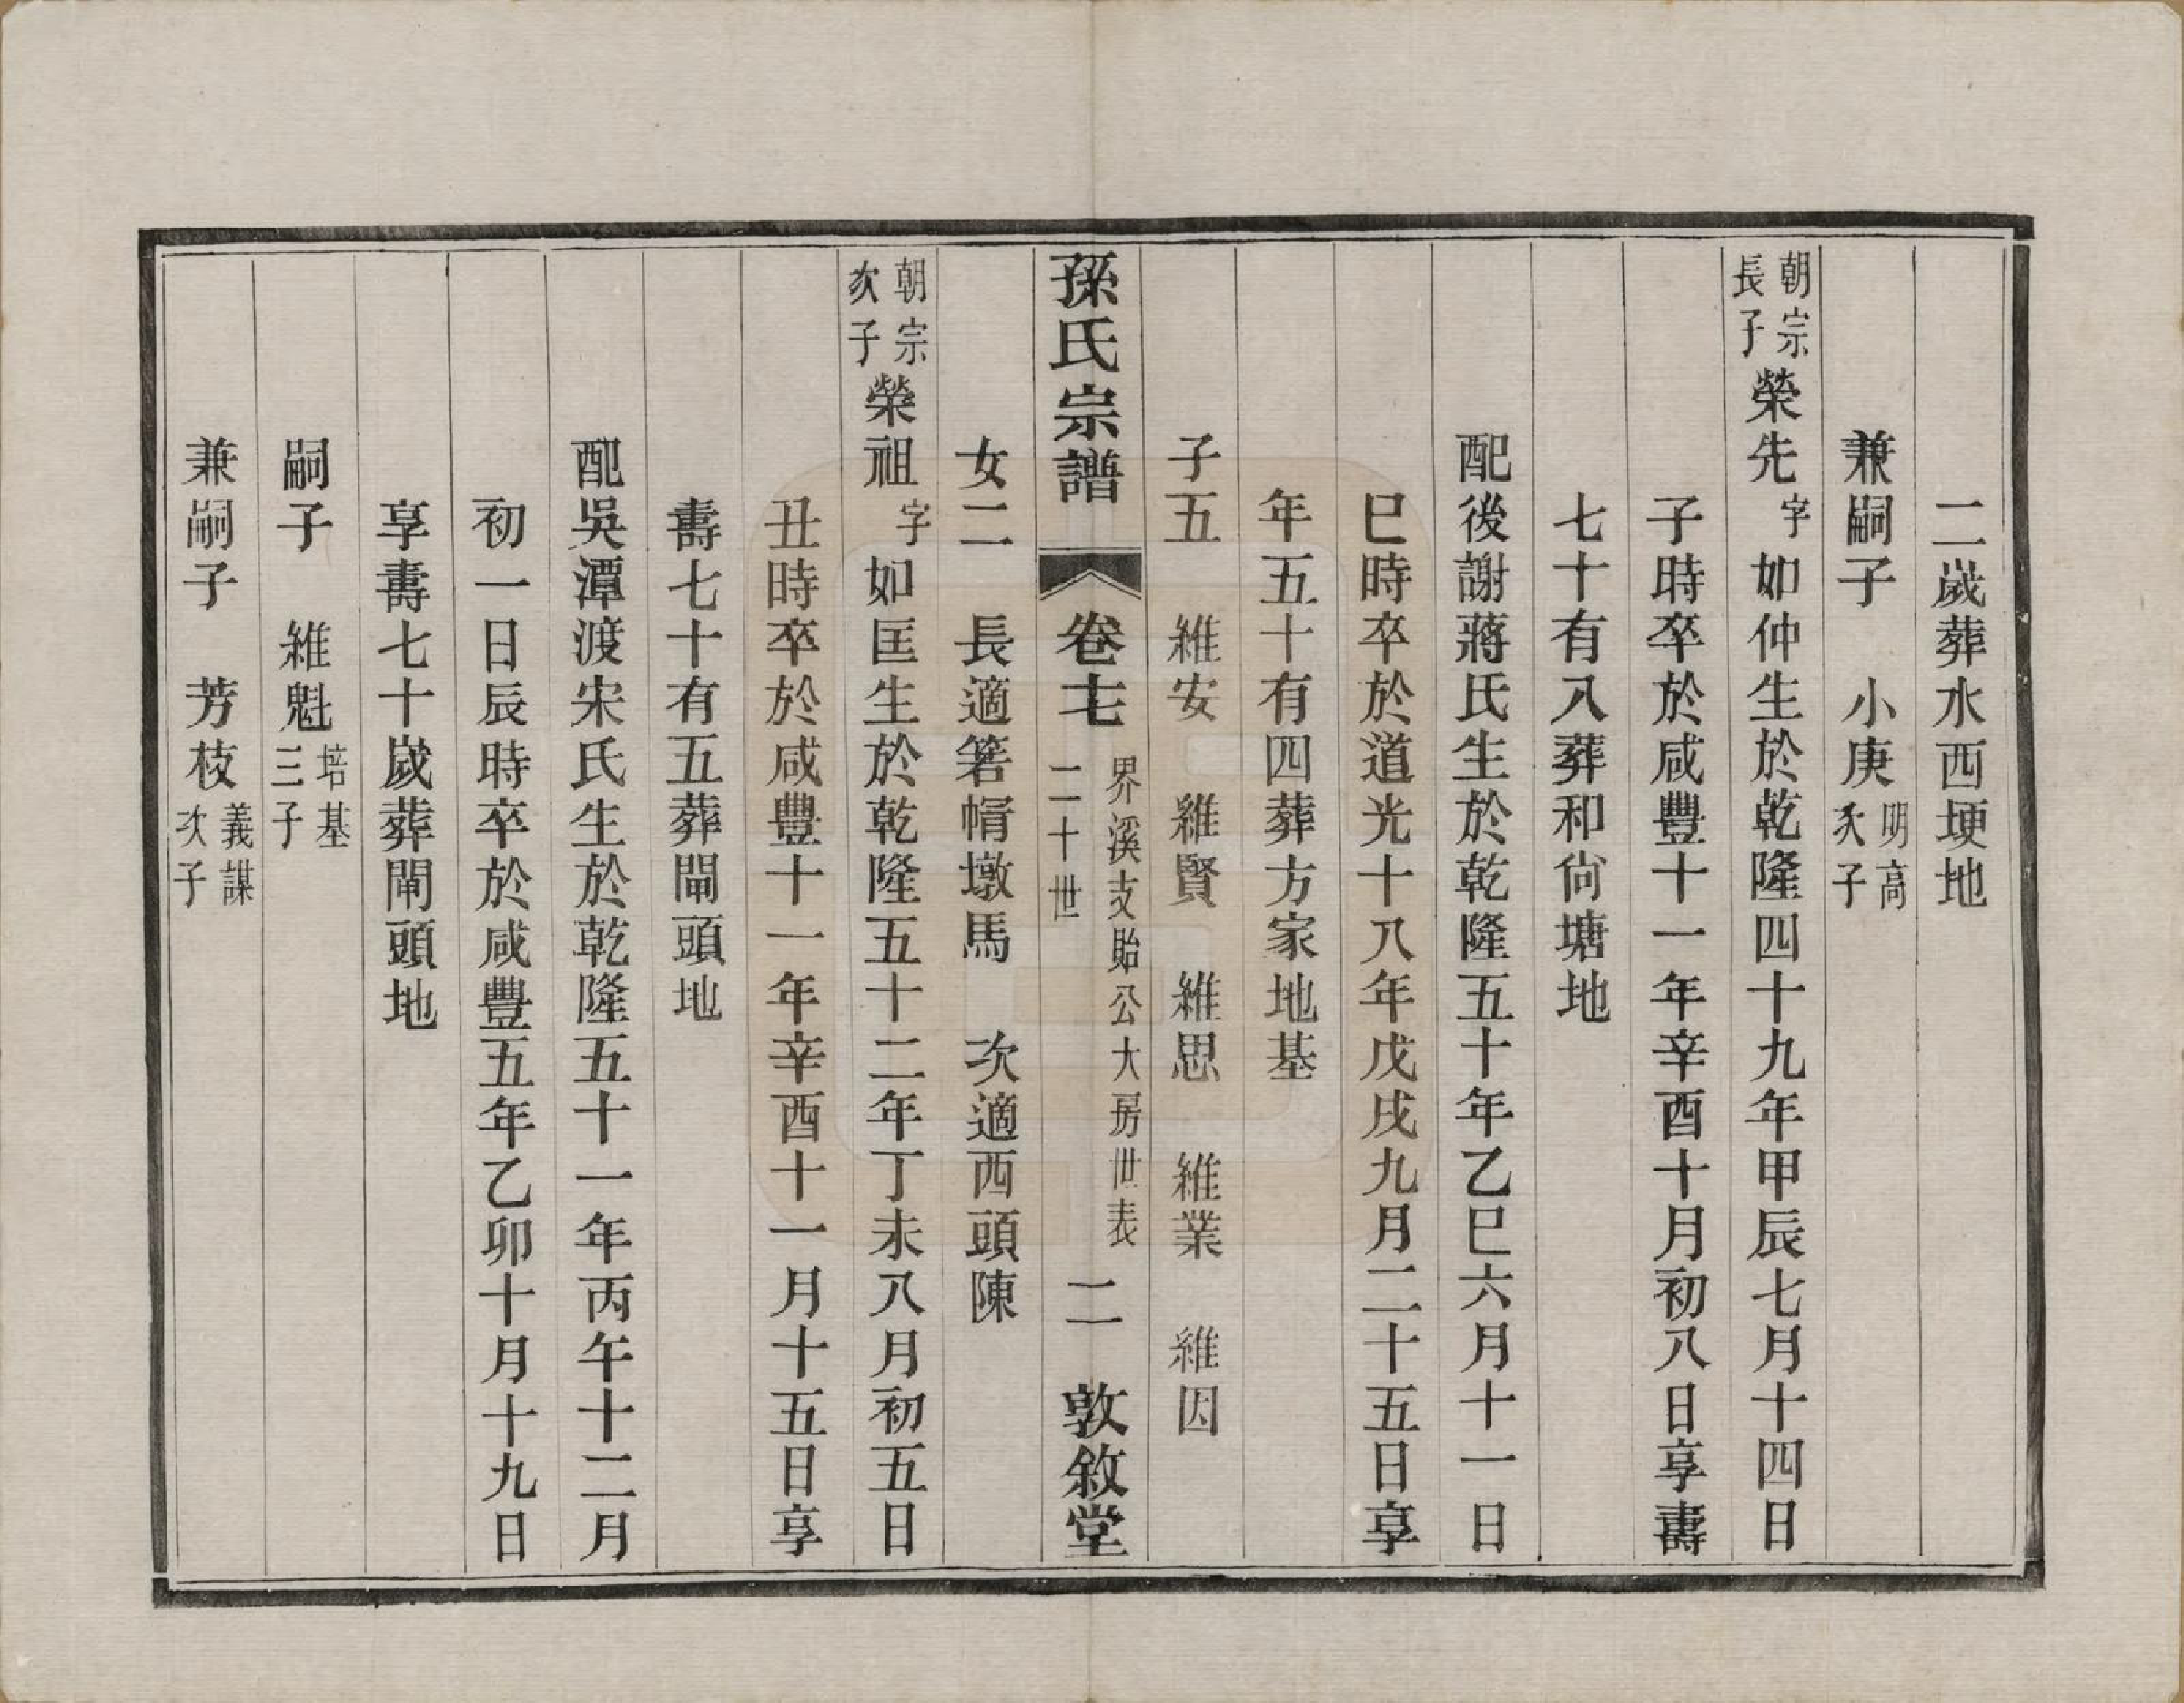 二歲葬水西埂地
兼嗣子　小庚明高次子
朝宗長子榮先字如仲生於乾隆四十九年甲辰七月十四日
子時卒於咸豐十一年辛酉十月初八日享壽
七十有八葬和尙塘地
配後謝蔣氏生於乾隆五十年乙巳六月十一日
巳時卒於道光十八年戊戌九月二十五日享
年五十有四葬方家地基
子五　維安　維賢　維思　維業　維因
孫氏宗譜　卷七　界溪支貽公大房世表二十世　二　敦敘堂
女二　長適箬帽墩馬　次適西頭陳
朝宗次子榮祖字如匡生於乾隆五十二年丁未八月初五日
丑時卒於咸豐十一年辛酉十一月十五日享
壽七十有五葬閘頭地
配吳潭渡宋氏生於乾隆五十一年丙午十二月
初一日辰時卒於咸豐五年乙卯十月十九日
享壽七十歲葬閘頭地
嗣子　維魁培基三子
兼嗣子　芳枝義謀次子